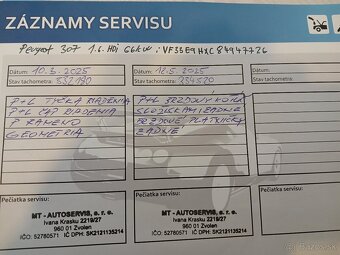 ZÁZNAMY SERVISU
Peugeot 307 1.6 HDi 66kW
Dátum: 10.3.2025
Stav tachometra:
Dátum: 12.5.2025
Stav tachometra: 234520
P+L TYČKA RIADENIA
P+L ČAP RIADENIA
P RAMENO
GEOMETRIA
P+L BRZDOVÝ KOTÚČ
PREDNÉ PLATNIČKY
ZADNÉ
Pečiatka servisu:
MT - AUTOSERVIS, s. r. o.
Ivana Krasku 2219/27
960 01 Zvolen
IČO: 52780571 IČ DPH: SK2121135214
Pečiatka servisu:
MT - AUTOSERVIS, s. r. o.
Ivana Krasku 2219/27
960 01 Zvolen
IČO: 52780571 IČ DPH: SK2121135214
Dátum:
Stav tachometra:
Pečiatka servisu: